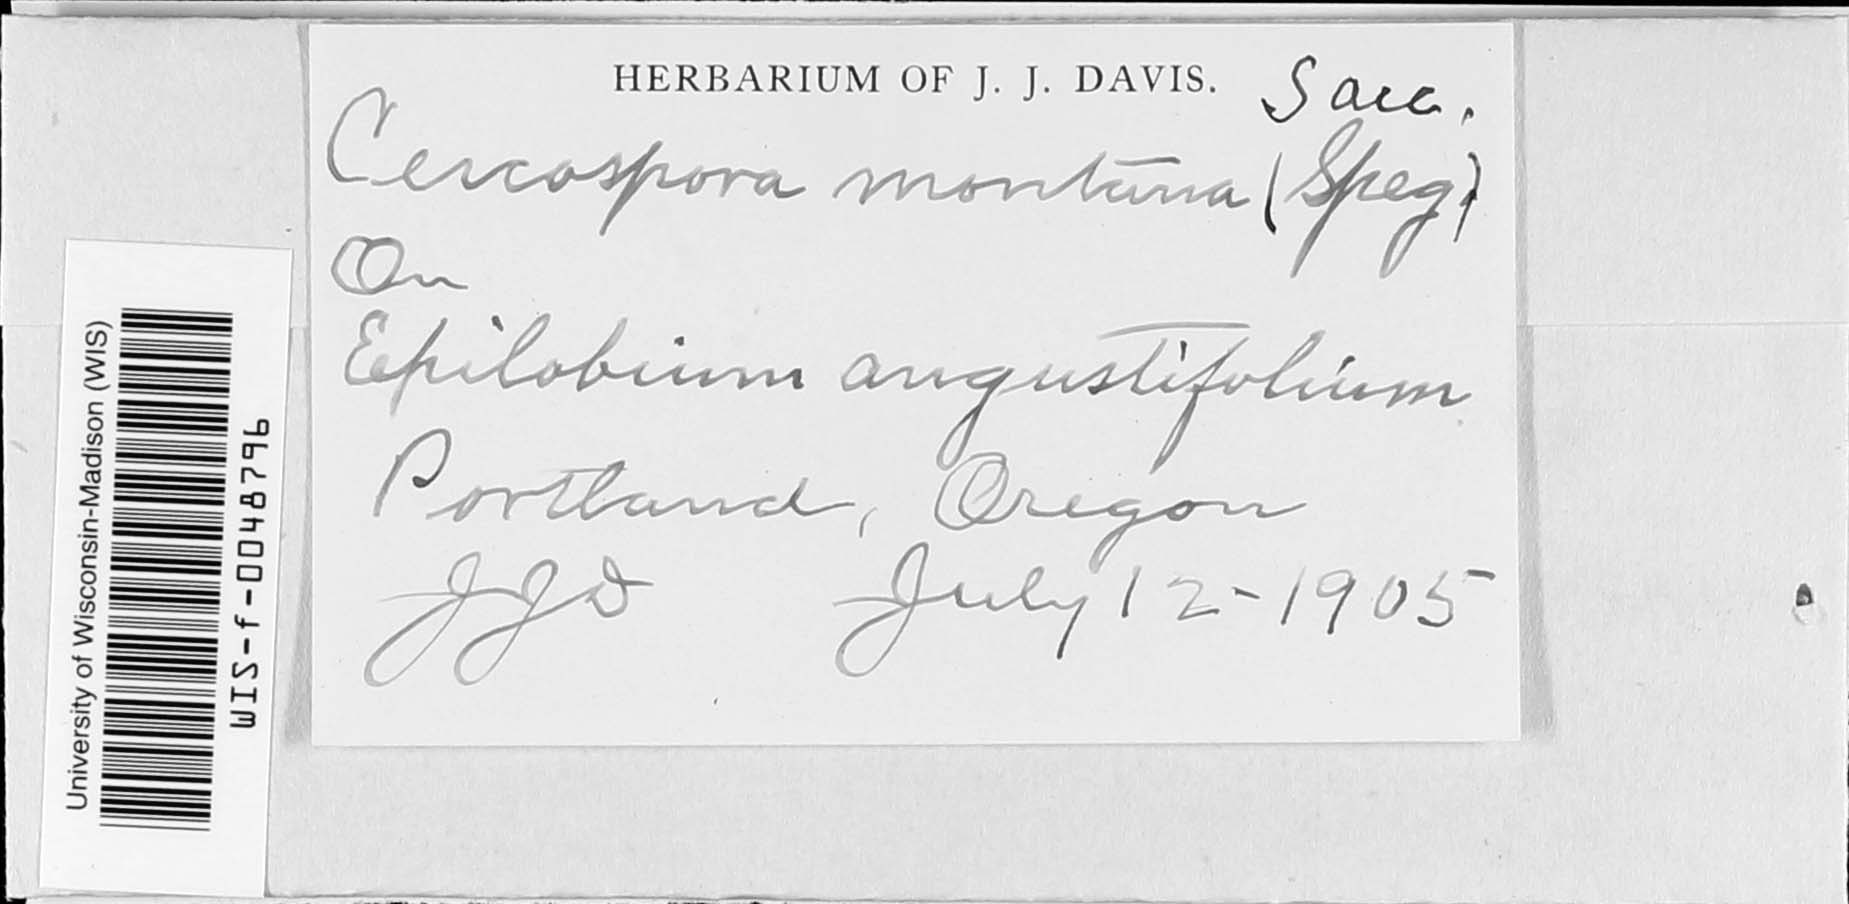 HERBARIUM OF J. J. DAVIS.
Sacc.
Cercospora montana (Speg)
On
Epilobium angustifolium
Portland, Oregon
JJD July 12-1905
University of Wisconsin-Madison (WIS)
WIS-f-0048796